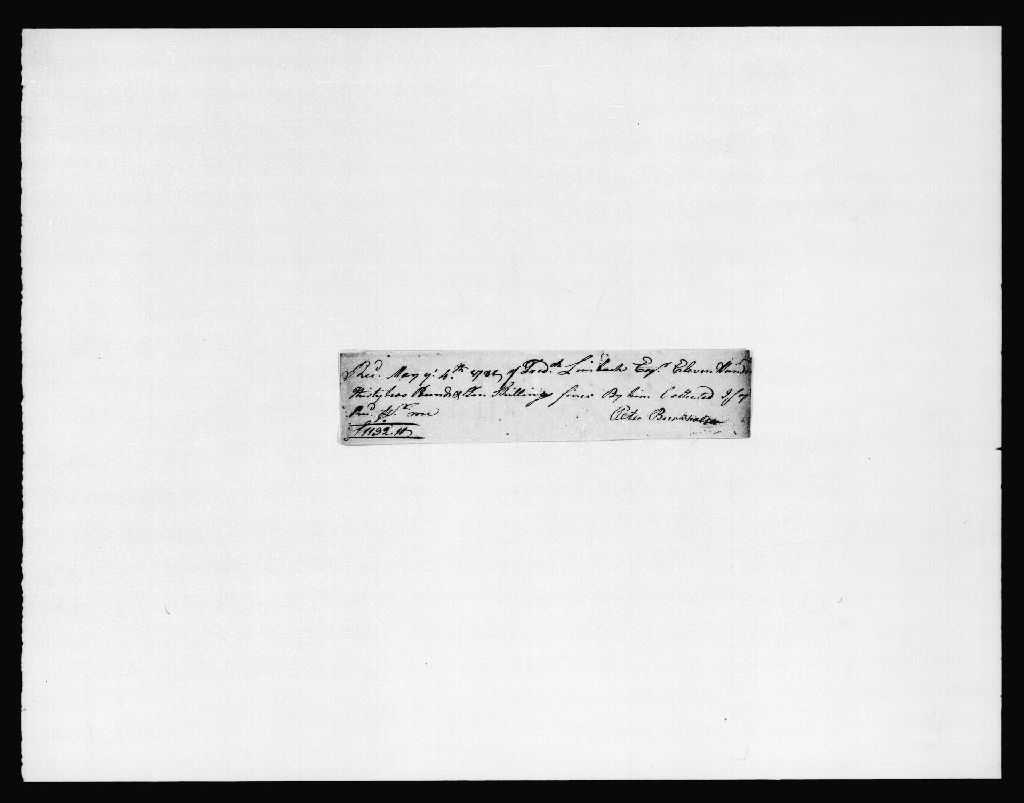 Rec.d May ye 4.th 1781 of Fred.k Limback Esq.r Eleven Hund
thirty two Pounds & Ten Shillings fines By him Collected I say
Rec.d pr me
Peter Burkhalter
£1132.10